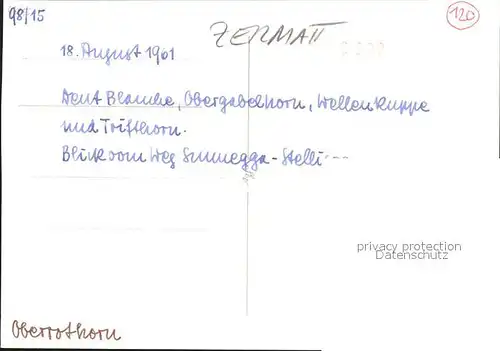 98/15
ZERMATT
120
18. August 1961
Dent Blanche, Obergabelhorn, Wellenkuppe
und Trifthorn.
Blick vom Weg Sunnegga - Stelli ---
privacy protection
Datenschutz
Oberrothorn